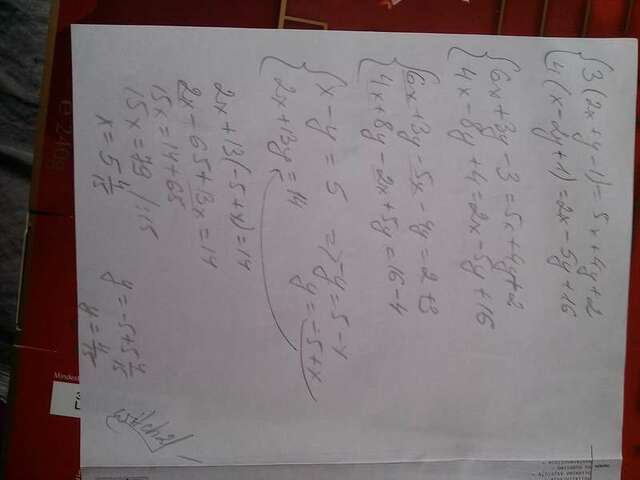 { 3(2x+y-1)=5x+4y+2
4(x-2y+1)=2x-5y+16
{ 6x+3y-3=5x+4y+2
4x-8y+4=2x-5y+16
{ 6x+3y-5x-4y=2+3
4x-8y-2x+5y=16-4
{ x-y=5 => -y=5-x
2x+13y=14 y=-5+x
2x+13(-5+x)=14
2x-65+13x=14
15x=14+65
15x=79 /:15
x=5 4/15 y=-5+5 4/15
y=4/15